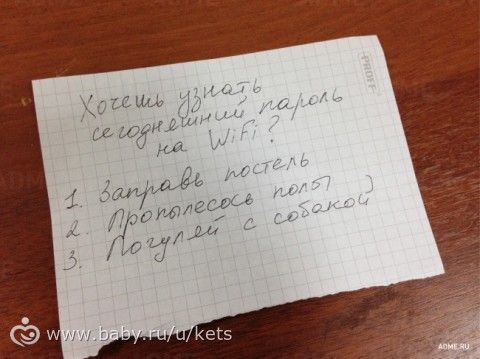 PROFF
Хочешь узнать
сегодняшний пароль
на WiFi?
1. Заправь постель
2. Пропылесось полы
3. Погуляй с собакой
www.baby.ru/u/kets
ADME.RU